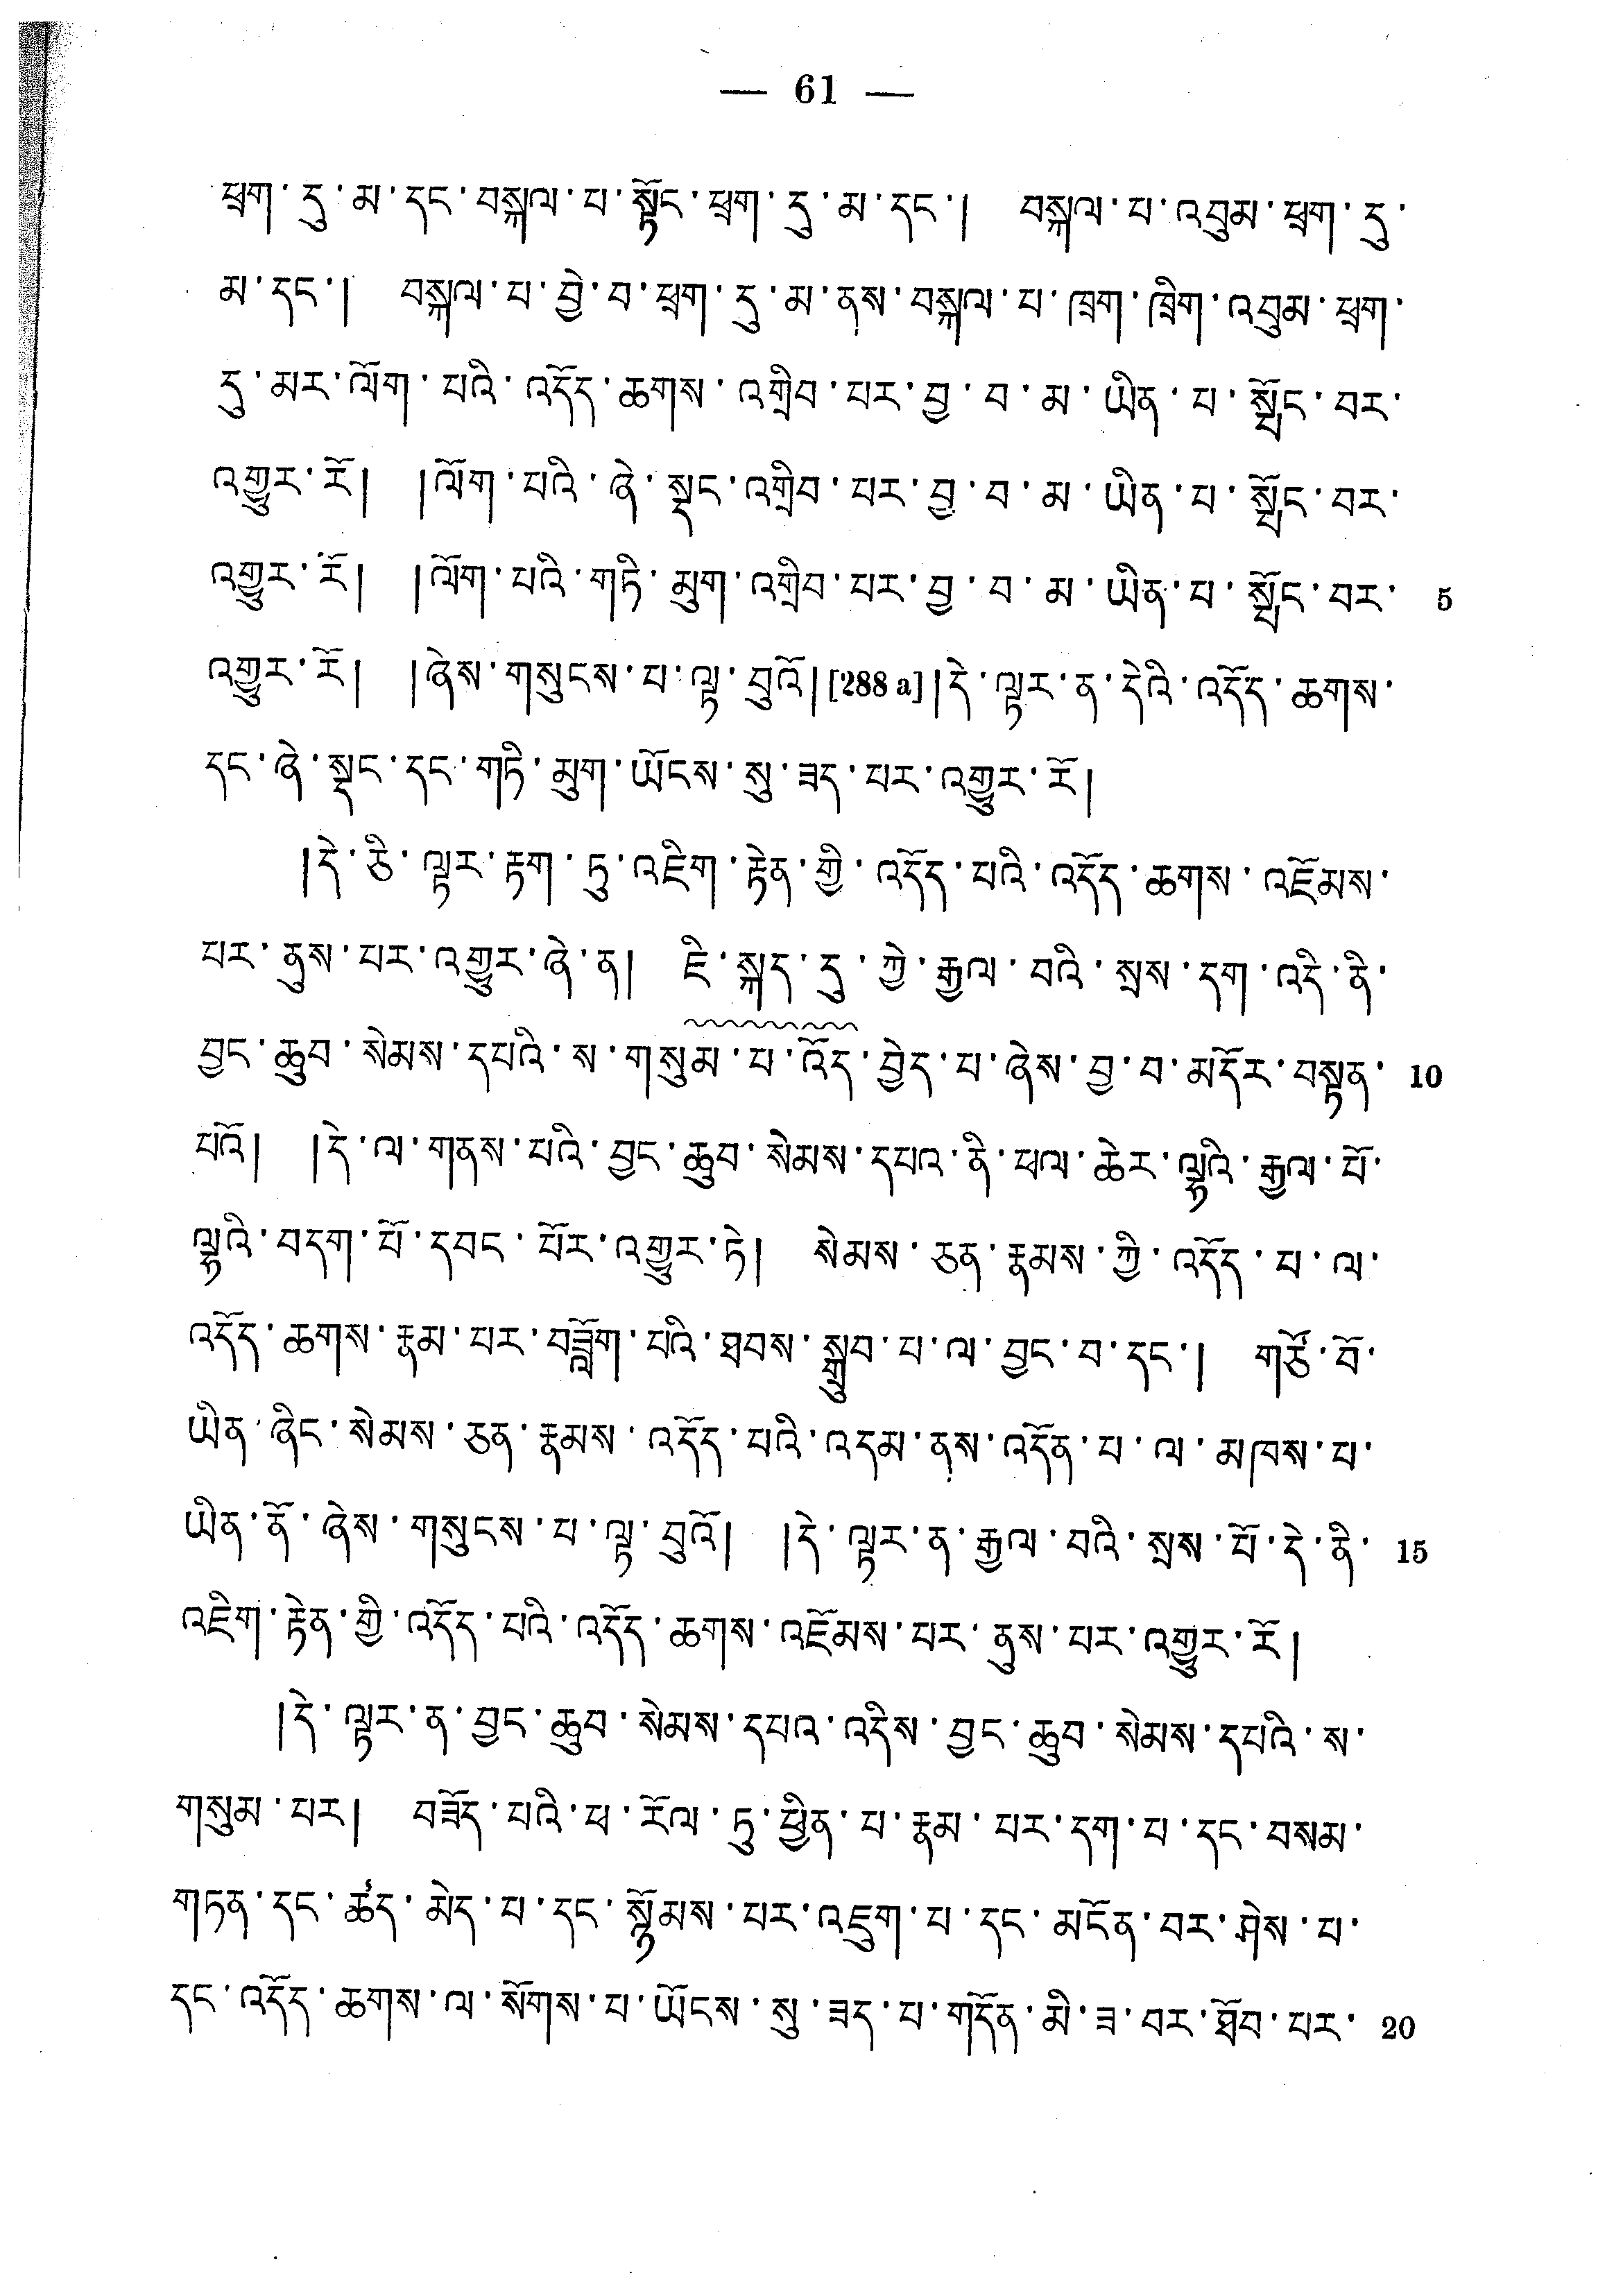 — 61 —
ཕྲག་དུ་མ་དང་བསྐལ་པ་སྟོང་ཕྲག་དུ་མ་དང་།  བསྐལ་པ་འབུམ་ཕྲག་དུ་
མ་དང་།  བསྐལ་པ་བྱེ་བ་ཕྲག་དུ་མ་ནས་བསྐལ་པ་ཁྲག་ཁྲིག་འབུམ་ཕྲག་
དུ་མར་ལོག་པའི་འདོད་ཆགས་འགྲིབ་པར་བྱ་བ་མ་ཡིན་པ་སྤོང་བར་
འགྱུར་རོ།  །ལོག་པའི་ཞེ་སྡང་འགྲིབ་པར་བྱ་བ་མ་ཡིན་པ་སྤོང་བར་
འགྱུར་རོ།  །ལོག་པའི་གཏི་མུག་འགྲིབ་པར་བྱ་བ་མ་ཡིན་པ་སྤོང་བར་ 5
འགྱུར་རོ།  །ཞེས་གསུངས་པ་ལྟ་བུའོ།[288 a]།དེ་ལྟར་ན་དེའི་འདོད་ཆགས་
དང་ཞེ་སྡང་དང་གཏི་མུག་ཡོངས་སུ་ཟད་པར་འགྱུར་རོ།
།དེ་ཅི་ལྟར་རྟག་ཏུ་འཇིག་རྟེན་གྱི་འདོད་པའི་འདོད་ཆགས་འཇོམས་
པར་ནུས་པར་འགྱུར་ཞེ་ན།  ཇི་སྐད་དུ་ཀྱེ་རྒྱལ་བའི་སྲས་དག་འདི་ནི་
བྱང་ཆུབ་སེམས་དཔའི་ས་གསུམ་པ་འོད་བྱེད་པ་ཞེས་བྱ་བ་མདོར་བསྟན་ 10
པའོ།  །དེ་ལ་གནས་པའི་བྱང་ཆུབ་སེམས་དཔའ་ནི་ཕལ་ཆེར་ལྷའི་རྒྱལ་པོ་
ལྷའི་བདག་པོ་དབང་པོར་འགྱུར་ཏེ།  སེམས་ཅན་རྣམས་ཀྱི་འདོད་པ་ལ་
འདོད་ཆགས་རྣམ་པར་བཟློག་པའི་ཐབས་སྒྲུབ་པ་ལ་བྱང་བ་དང་།  གཙོ་བོ་
ཡིན་ཞིང་སེམས་ཅན་རྣམས་འདོད་པའི་འདམ་ནས་འདོན་པ་ལ་མཁས་པ་
ཡིན་ནོ་ཞེས་གསུངས་པ་ལྟ་བུའོ།  །དེ་ལྟར་ན་རྒྱལ་བའི་སྲས་པོ་དེ་ནི་ 15
འཇིག་རྟེན་གྱི་འདོད་པའི་འདོད་ཆགས་འཇོམས་པར་ནུས་པར་འགྱུར་རོ།
།དེ་ལྟར་ན་བྱང་ཆུབ་སེམས་དཔའ་འདིས་བྱང་ཆུབ་སེམས་དཔའི་ས་
གསུམ་པར།  བཟོད་པའི་ཕ་རོལ་ཏུ་ཕྱིན་པ་རྣམ་པར་དག་པ་དང་བསམ་
གཏན་དང་ཚད་མེད་པ་དང་སྙོམས་པར་འཇུག་པ་དང་མངོན་བར་ཤེས་པ་
དང་འདོད་ཆགས་ལ་སོགས་པ་ཡོངས་སུ་ཟད་པ་གདོན་མི་ཟ་བར་ཐོབ་པར་ 20